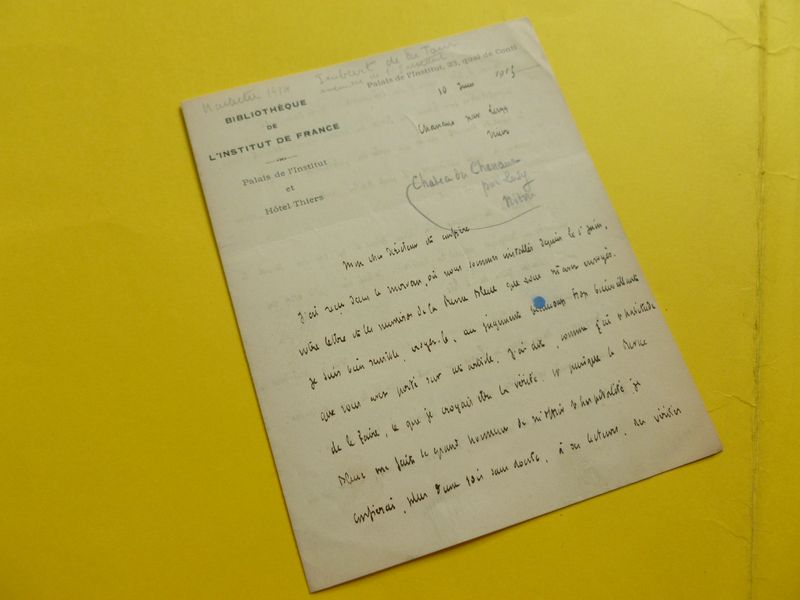 Joubert de la Tour
membre de l'Institut
BIBLIOTHÈQUE
DE
L'INSTITUT DE FRANCE
Palais de l'Institut
et
Hôtel Thiers
Palais de l'Institut, 23, quai de Conti
10 Juin 191
par
Chateau du
par Luzy
Nièvre
Mon cher Directeur et confrère
J'ai reçu dans le Morvan, où nous sommes installés depuis le 1er juin,
votre lettre et les numéros de la Revue Bleue que vous m'avez envoyés.
Je suis bien sensible, croyez-le, au jugement beaucoup trop bienveillant
que vous avez porté sur cet article. J'ai dit, comme j'ai l'habitude
de le faire, ce que je croyais être la vérité. Et puisque la Revue
Bleue me fait le grand honneur de m'offrir l'hospitalité, je
confierai, plus d'une fois sans doute, à ses lecteurs, des vérités